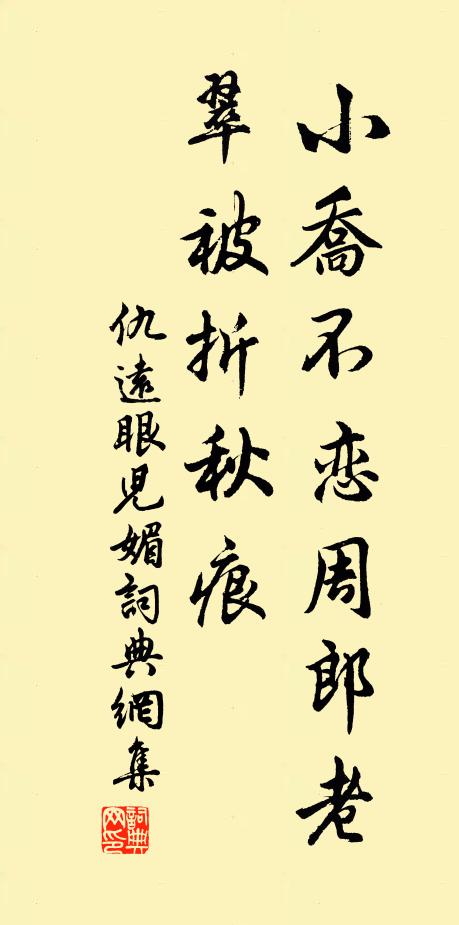 小喬不恋周郎老
翠被折秋痕
仇遠眼児媚詞典網集
詞典网印